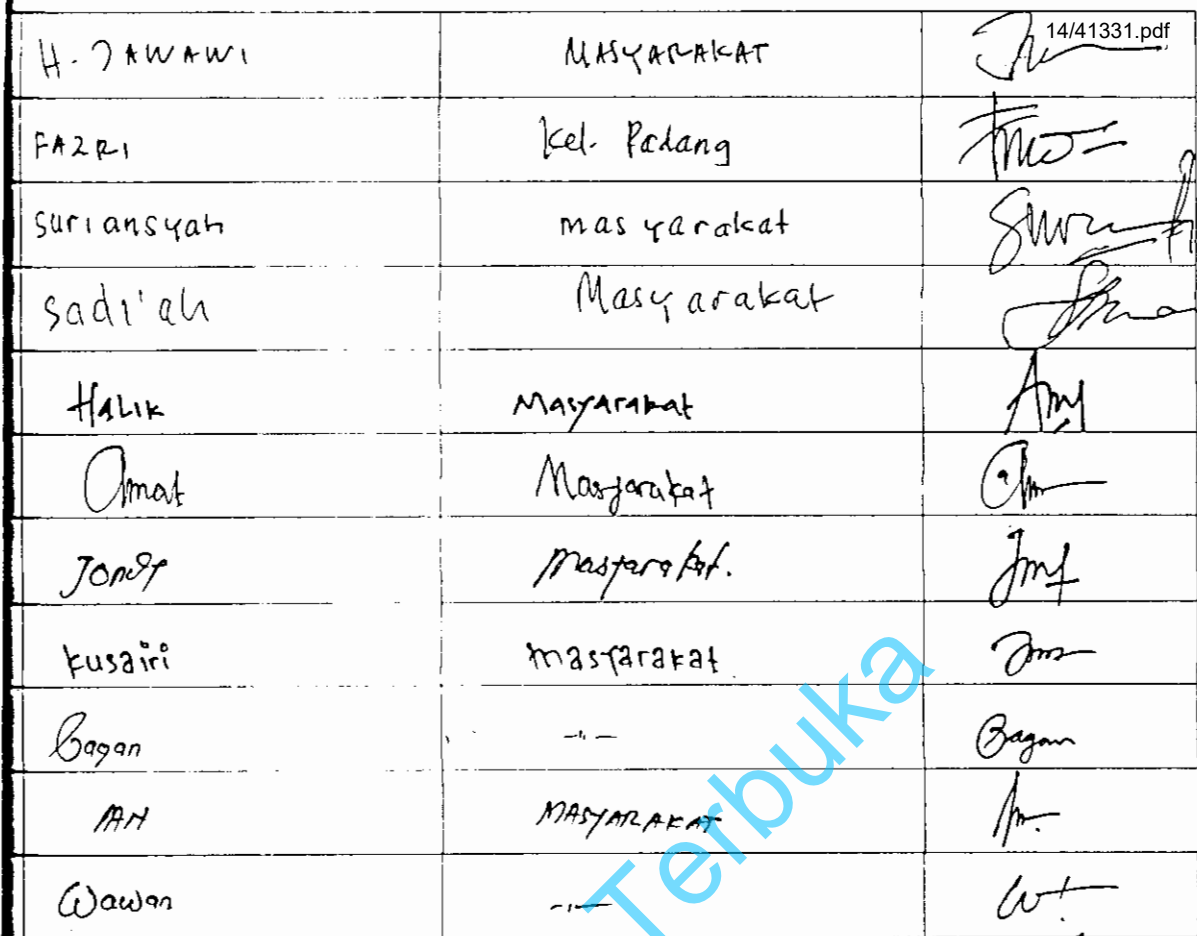 14/41331.pdf
H. JAWAWI MASYARAKAT
FAZRI Kel. Padang
suriansyah masyarakat
sadi'ah Masyarakat
HALIK Masyarakat
Amat Masyarakat
Masyarakat.
kusairi masyarakat
Bagan -"- Bagan
MASYARAKAT
Wawan -"-
Terbuka